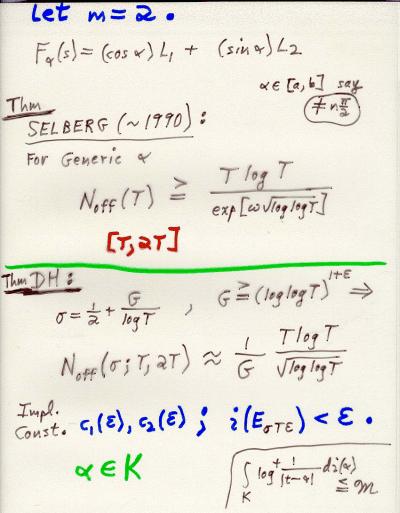 Let m = 2.
F_α(s) = (cos α) L_1 + (sin α) L_2
α ∈ [a, b] say
≠ n π/2
Thm
SELBERG (~1990):
For Generic α
N_off(T) ≧ T log T / exp[ω√log log T]
[T, 2T]
Thm DH:
σ = 1/2 + G/log T , G ≧ (log log T)^{1+ε} ⇒
N_off(σ; T, 2T) ≈ 1/G T log T / √log log T
Impl. Const. c_1(ε), c_2(ε) ; i(E_{σTε}) < ε.
α ∈ K
∫_K log^+ 1/|t-α| di(α) ≦ m